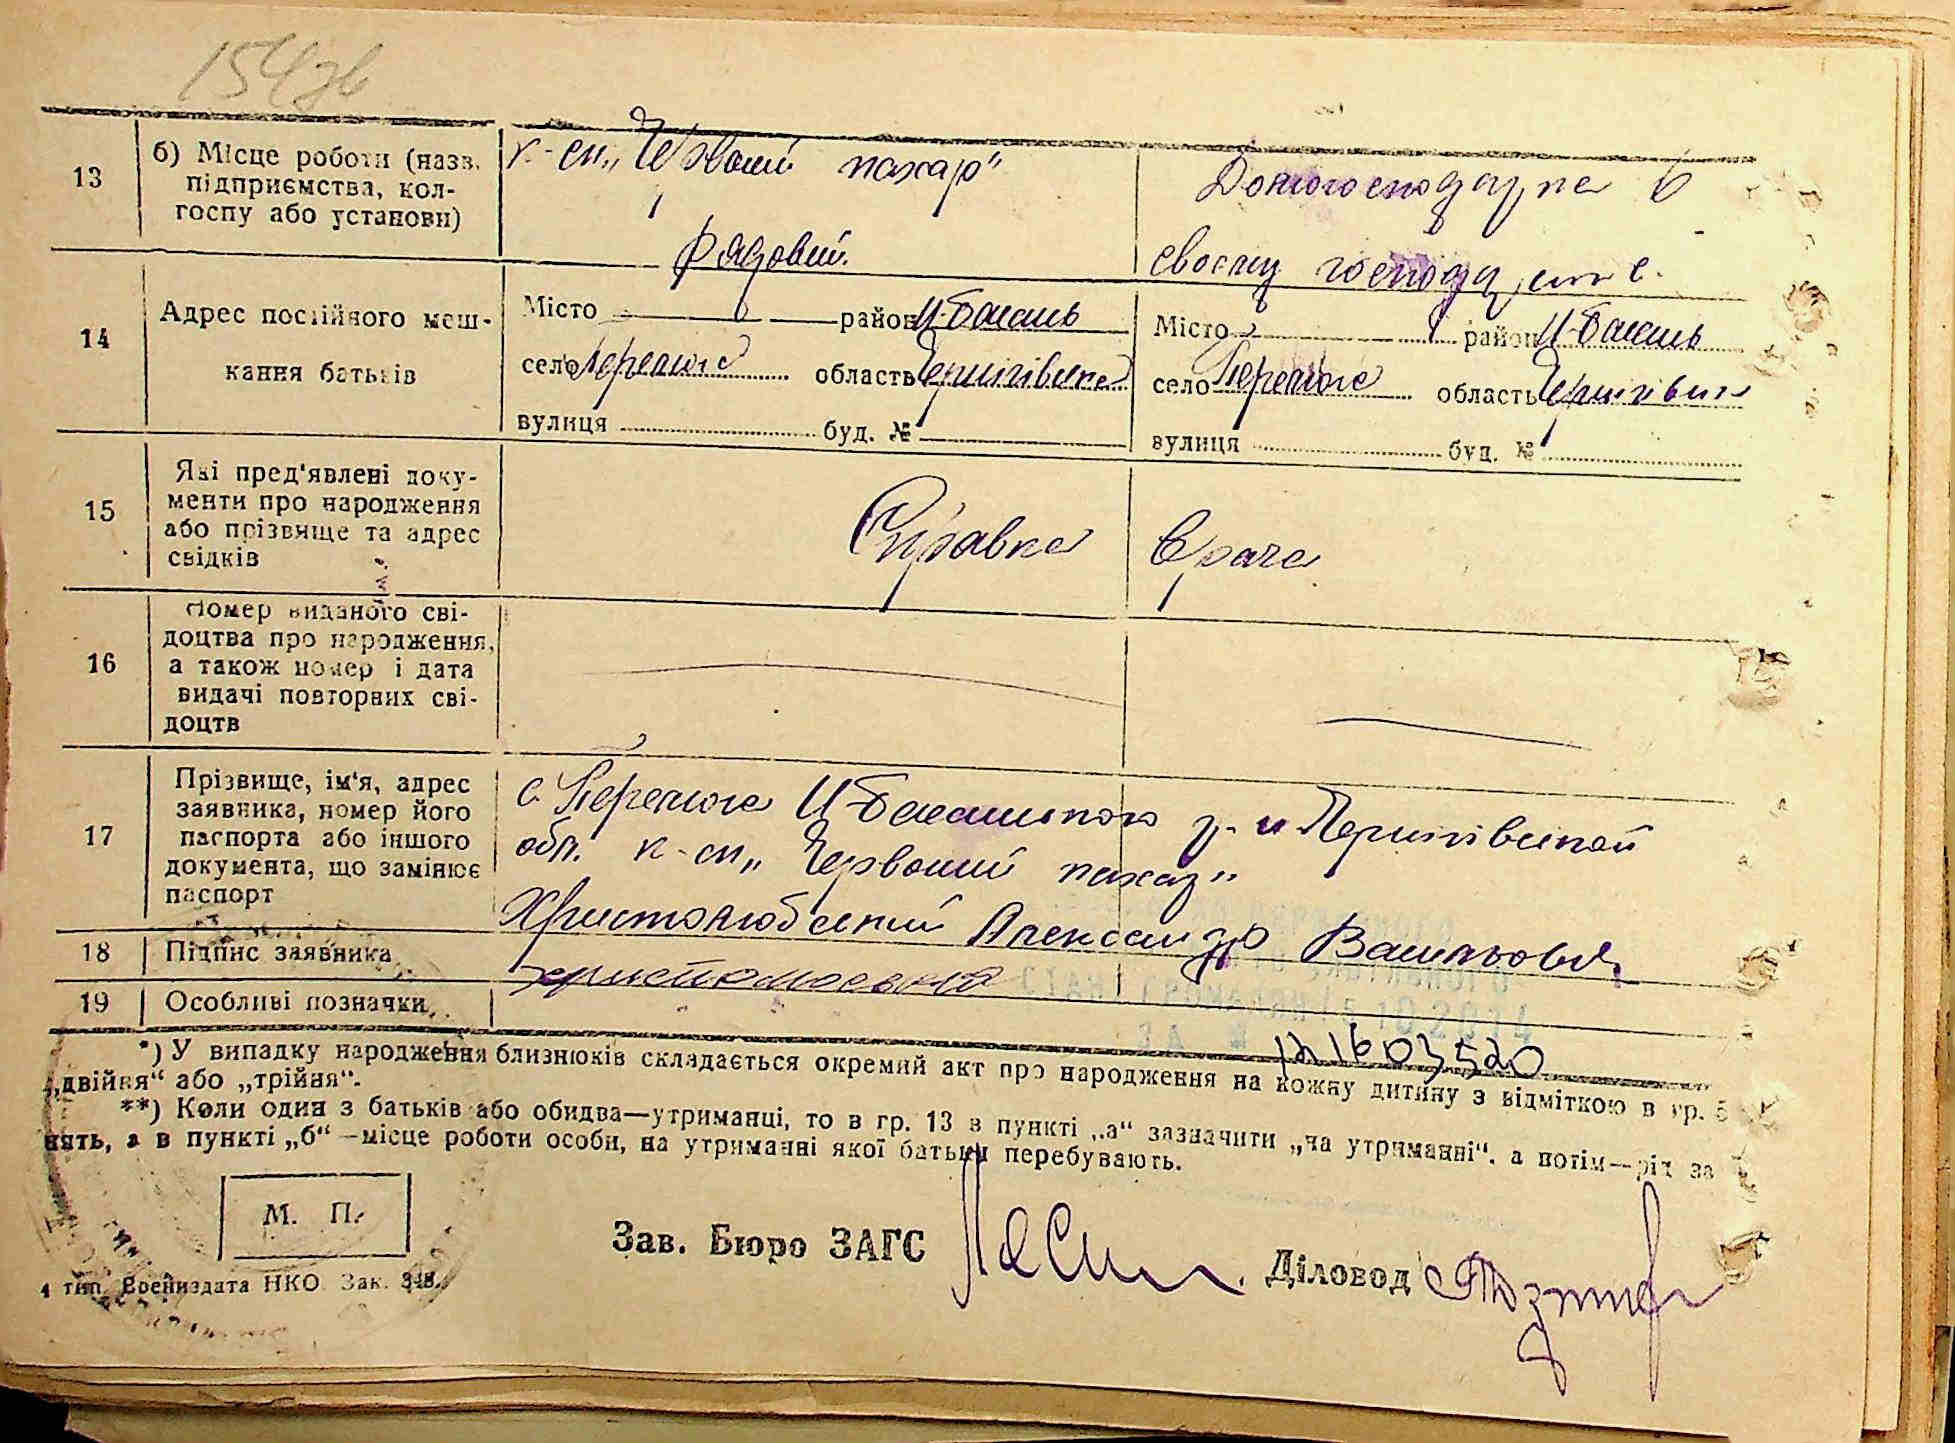 154 зв
13
б) Місце роботи (назв. підприємства, колгоспу або установи)
к-сп „Червоний пахар"
Рядовий.
Домогосподарка в
своєму господарстве.
14
Адрес постійного мешкання батьків
Місто район И-Бакань
село Перемога область Чернігівська
вулиця буд. №
Місто район И-Бакань
село Перемога область Чернігівськ
вулиця буд. №
15
Які пред'явлені документи про народження або прізвище та адрес свідків
Справка Врача
16
Номер виданого свідоцтва про народження, а також номер і дата видачі повторних свідоцтв
17
Прізвище, ім'я, адрес заявника, номер його паспорта або іншого документа, що замінює паспорт
с. Перемога р-н Чернігівской
обл. к-сп „Червоний пахар"
Христолюбский Александр Васильович
18
Підпис заявника
19
Особливі позначки
*) У випадку народження близнюків складається окремий акт про народження на кожну дитину з відміткою в гр. 5
„двійня" або „трійня".
**) Коли один з батьків або обидва—утриманці, то в гр. 13 в пункті „а" зазначити „на утриманні", а потім—рід за
нять, а в пункті „б"—місце роботи особи, на утриманні якої батьки перебувають.
М. П.
Зав. Бюро ЗАГС
Діловод
4 тип. Воениздата НКО. Зак. 348.